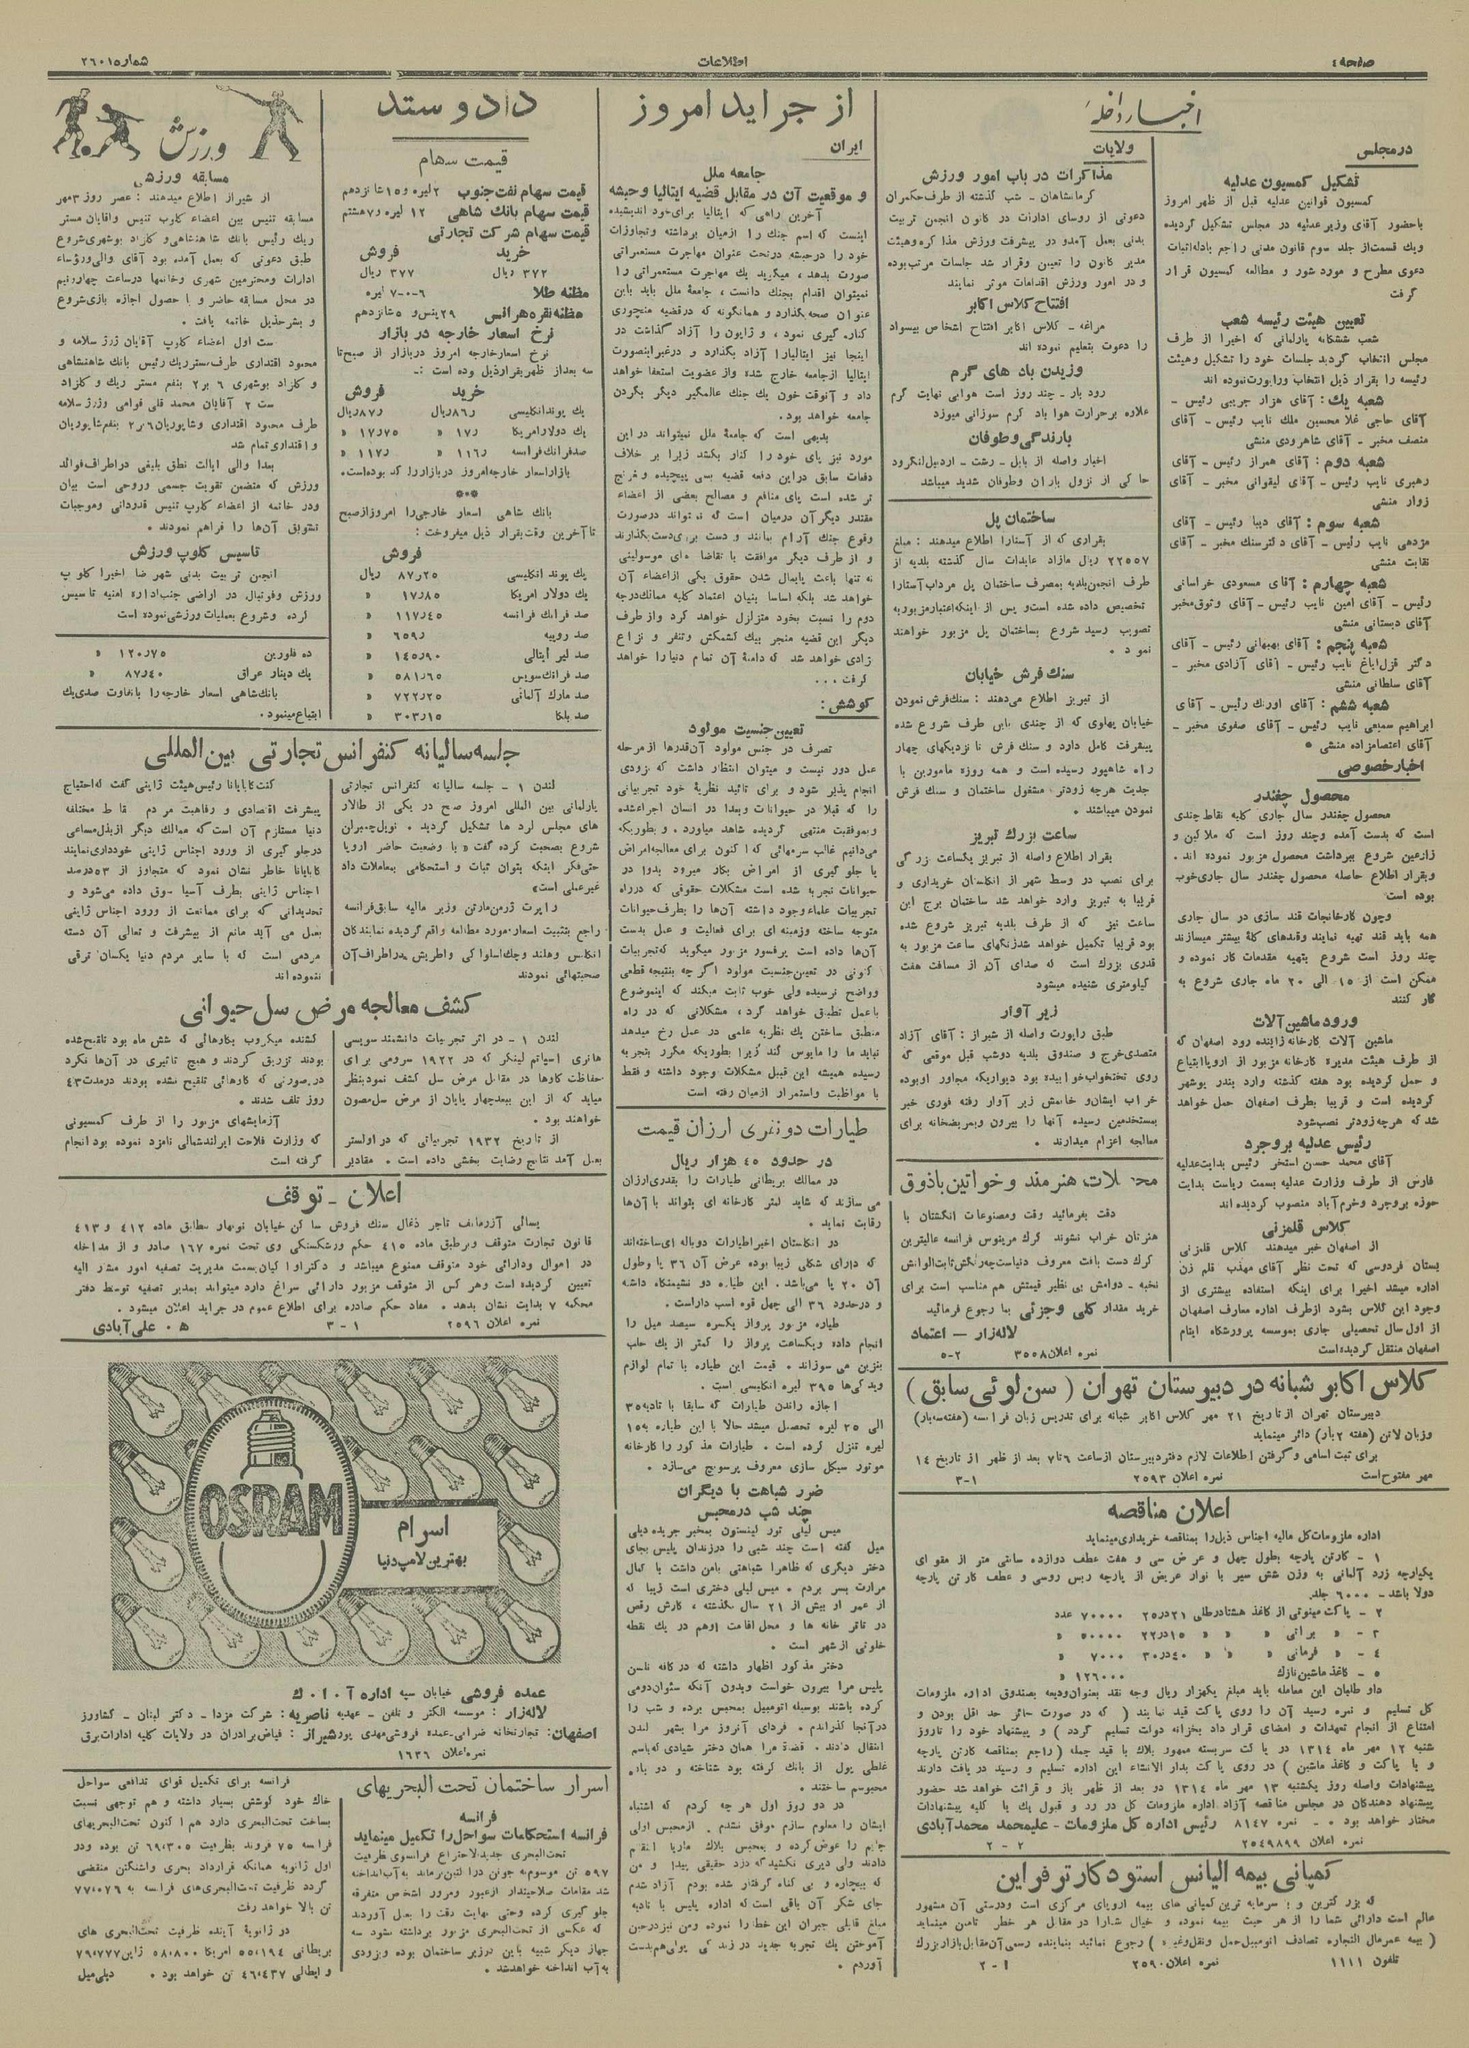 صفحه ٤
اطلاعات
شماره ٢٦٠١
اخبار داخله
در مجلس
تشکیل کمسیون عدلیه
کمسیون قوانین عدلیه قبل از ظهر امروز
باحضور آقای وزیر عدلیه در مجلس تشکیل گردیده
ویك قسمت از جلد سوم قانون مدنی راجع بادله اثبات
دعوی مطرح و مورد شور و مطالعه کمسیون قرار
گرفت
تعیین هیئت رئیسه شعب
شعب ششگانه پارلمانی که اخیرا از طرف
مجلس انتخاب گردید جلسات خود را تشکیل وهیئت
رئیسه را بقرار ذیل انتخاب وراپورت نموده اند
شعبه یك : آقای هزار جریبی رئیس -
آقای حاجی غلامحسین ملك نایب رئیس - آقای
منصف مخبر - آقای شاهرودی منشی
شعبه دوم : آقای همراز رئیس - آقای
رهبری نایب رئیس - آقای لیقوانی مخبر - آقای
زوار منشی
شعبه سوم : آقای دیبا رئیس - آقای
مزدهی نایب رئیس - آقای دکتر سنك مخبر - آقای
نقابت منشی
شعبه چهارم : آقای مسعودی خراسانی
رئیس - آقای امین نایب رئیس - آقای وثوق مخبر
آقای دبستانی منشی
شعبه پنجم : آقای بهبهانی رئیس - آقای
دکتر قزل ایاغ نایب رئیس - آقای آزادی مخبر -
آقای سلطانی منشی
شعبه ششم : آقای اورنك رئیس - آقای
ابراهیم سمیعی نایب رئیس - آقای صفوی مخبر -
آقای اعتصامزاده منشی
اخبار خصوصی
محصول چغندر
محصول چغندر سال جاری کلیه نقاط چندی
است که بدست آمده وچند روز است که ملاکین و
زارعین شروع ببرداشت محصول مزبور نموده اند .
وبقرار اطلاع حاصله محصول چغندر سال جاری خوب
بوده است
وچون کارخانجات قند سازی در سال جاری
همه باید قند تهیه نمایند وقندهای کله بیشتر میسازند
چند روز است شروع بتهیه مقدمات کار نموده و
ممکن است از ١٥ الی ٢٠ ماه جاری شروع به
کار کنند
ورود ماشین آلات
ماشین آلات کارخانه زاینده رود اصفهان که
از طرف هیئت مدیره کارخانه مزبور از اروپا ابتیاع
و حمل گردیده بود هفته گذشته وارد بندر بوشهر
گردیده است و قریبا بطرف اصفهان حمل خواهد
شد که هرچه زودتر نصب شود
رئیس عدلیه بروجرد
آقای محمد حسن استخر رئیس بدایت عدلیه
فارس از طرف وزارت عدلیه بسمت ریاست بدایت
حوزه بروجرد وخرم آباد منصوب گردیده اند
کلاس قلمزنی
از اصفهان خبر میدهند کلاس قلمزنی
بستان فردوسی که تحت نظر آقای مهذب قلم زن
اداره میشد اخیرا برای اینکه استفاده بیشتری از
وجود این کلاس بشود از طرف اداره معارف اصفهان
از اول سال تحصیلی جاری بموسسه پرورشگاه ایتام
اصفهان منتقل گردیده است
ولایات
مذاکرات در باب امور ورزش
کرمانشاهان - شب گذشته از طرف حکمران
دعوتی از روسای ادارات در کانون انجمن تربیت
بدنی بعمل آمدو در پیشرفت ورزش مذاکره وهیئت
مدیر کانون را تعیین وقرار شد جلسات مرتب بوده
و در امور ورزش اقدامات موثر نمایند
افتتاح کلاس اکابر
مراغه - کلاس اکابر افتتاح اشخاص بیسواد
را دعوت بتعلیم نموده اند
وزیدن باد های گرم
رود بار - چند روز است هوای نهایت گرم
علاوه برحرارت هوا باد گرم سوزانی میوزد
بارندگی وطوفان
اخبار واصله از بابل - رشت - اردبیل لنگرود
حاکی از نزول باران وطوفان شدید میباشد
ساختمان پل
بقراری که از آستارا اطلاع میدهند : مبلغ
٢٢٥٥٧ ریال مازاد عایدات سال گذشته بلدیه از
طرف انجمن بلدیه بمصرف ساختمان پل مرداب آستارا
تخصیص داده شده است و پس از اینکه اعتبار مزبور به
تصویب رسید شروع بساختمان پل مزبور خواهند
نمود .
سنك فرش خیابان
از تبریز اطلاع می‌دهند : سنك فرش نمودن
خیابان پهلوی که از چندی باین طرف شروع شده
پیشرفت کامل دارد و سنك فرش تا نزدیکهای چهار
راه شاهپور رسیده است و همه روزه مامورین با
جدیت هرچه زودتر مشغول ساختمان و سنك فرش
نمودن میباشند .
ساعت بزرك تبریز
بقرار اطلاع واصله از تبریز یکساعت بزرگی
برای نصب در وسط شهر از انگلستان خریداری و
قریبا به تبریز وارد خواهد شد ساختمان برج این
ساعت نیز که از طرف بلدیه تبریز شروع شده
بود قریبا تکمیل خواهد شد زنگهای ساعت مزبور به
قدری بزرك است که صدای آن از مسافت هفت
کیلومتری شنیده میشود
زیر آوار
طبق راپورت واصله از شیراز : آقای آزاد
متصدی خرج و صندوق بلدیه دوشب قبل موقعی که
روی تختخواب خوابیده بود دیوار یك مجاور اوبوده
خراب ایشان و خانمش زیر آوار رفته فوری خبر
بمستخدمین رسیده آنها را بیرون وبمریضخانه برای
معالجه اعزام میدارند .
محصلات هنرمند و خواتین باذوق
دقت بفرمائید وقت ومصنوعات انگشتان با
هنرتان خراب نشوند کرك مرینوس فرانسه عالیترین
کرك دست بافت معروف دنیاست چه رنگش ثابت الوانش
نخبه - دوامش بی نظیر قیمتش هم مناسب است برای
خرید مقدار کلی وجزئی بما رجوع فرمائید
لاله زار - اعتماد
نمره اعلان ٣٥٠٨ ٢-٥
کلاس اکابر شبانه در دبیرستان تهران ( سن لوئی سابق )
دبیرستان تهران از تاریخ ٢١ مهر کلاس اکابر شبانه برای تدریس زبان فرانسه (هفته سه بار)
وزبان لاتن (هفته ٢ بار) دائر مینماید
برای ثبت اسامی و گرفتن اطلاعات لازم دفتر دبیرستان از ساعت ٦ تا ٧ بعد از ظهر از تاریخ ١٤
مهر مفتوح است نمره اعلان ٢٥٩٣ ١-٣
اعلان مناقصه
اداره ملزومات کل مالیه اجناس ذیل را بمناقصه خریداری مینماید
١ - کارتن پارچه بطول چهل و عرض سی و هفت عطف دوازده سانتی متر از مقوای
یکپارچه زرد آلمانی به وزن شش سیر با نوار عریض از پارچه ریس روسی و عطف کارتن پارچه
دولا باشد - ٦٠٠٠ جلد
٢ - پاکت مینوتی از کاغذ هشتادرطلی ٢١ در ٢٥ ٧٠٠٠٠ عدد
٣ - « براتی « « ١٥ در ٢٢ ٥٠٠٠٠ «
٤ - « فرمانی « « ٤٠ در ٣٠ ٧٠٠٠ «
٥ - کاغذ ماشین نازك ١٢٦٠٠٠ «
داوطلبان این معامله باید مبلغ یکهزار ریال وجه نقد بعنوان ودیعه بصندوق اداره ملزومات
کل تسلیم و نمره رسید آن را روی پاکت قید نمایند ( که در صورت حائز حد اقل بودن و
امتناع از انجام تعهدات و امضای قرار داد بخزانه دولت تسلیم گردد ) و پیشنهاد خود را تا روز
شنبه ١٢ مهر ماه ١٣١٤ در پاکت سربسته ممهور بلاك با قید جمله ( راجع بمناقصه کارتن پارچه
و یا پاکت و کاغذ ماشین ) در روی پاکت بدار الانشاء این اداره تسلیم و رسید دریافت دارند
پیشنهادات واصله روز یکشنبه ١٣ مهر ماه ١٣١٤ در بعد از ظهر باز و قرائت خواهد شد حضور
پیشنهاد دهندگان در مجلس مناقصه آزاد اداره ملزومات کل در رد و قبول یك یا کلیه پیشنهادات
مختار خواهد بود . - نمره ٨١٤٧ رئیس اداره کل ملزومات - علیمحمد محمدآبادی
نمره اعلان ٢٥٤٩٨٩٩ ٢ - ٢
کمپانی بیمه الیانس استودکارتر فراین
که بزرگترین و با سرمایه ترین کمپانی های بیمه اروپای مرکزی است ودرستی آن مشهور
عالم است دارائی شما را از هر حیث بیمه نموده و خیال شمارا در مقابل هر خطر تامین مینماید
( بیمه عمر مال التجاره تصادف اتومبیل حمل ونقل وغیره ) رجوع نمائید بنماینده رسمی آن مقابل بازار بزرك
تلفون ١١١١ نمره اعلان ٢٥٩٠ ١-٢
از جراید امروز
ایران
جامعه ملل
و موقعیت آن در مقابل قضیه ایتالیا وحبشه
آخرین راهی که ایتالیا برای خود اندیشیده
اینست که اسم جنك را از میان برداشته وتجاوزات
خود را درحبشه درتحت عنوان مهاجرت مستعمراتی
صورت بدهد ، میگوید یك مهاجرت مستعمراتی را
نمیتوان اقدام بجنك دانست ، جامعه ملل باید باین
عنوان صحه بگذارد و همانگونه که درقضیه منچوری
کناره گیری نمود ، و ژاپون را آزاد گذاشت در
اینجا نیز ایتالیارا آزاد بگذارد و درغیراینصورت
ایتالیا از جامعه خارج شده و از عضویت استعفا خواهد
داد و آنوقت خون یك جنك عالمگیر دیگر بگردن
جامعه خواهد بود .
بدیهی است که جامعه ملل نمیتواند در این
مورد نیز پای خود را کنار بکشد زیرا بر خلاف
دفعات سابق دراین دفعه قضیه بسی پیچیده وبغرنج
تر شده است پای منافع و مصالح بعضی از اعضاء
مقتدر دیگر آن درمیان است که نمیتواند درصورت
وقوع جنك آرام بمانند و دست بروی دست بگذارند
و از طرف دیگر موافقت با تقاضاهای موسولینی
نه تنها باعث پایمال شدن حقوق یکی از اعضاء آن
خواهد شد بلکه اساسا بنیان اعتماد کلیه ممالك درجه
دوم را نسبت بخود متزلزل خواهد کرد واز طرف
دیگر این قضیه منجر بیك کشمکش وتنفر و نزاع
زادی خواهد شد که دامنه آن تمام دنیا را خواهد
گرفت . . .
کوشش :
تعیین جنسیت مولود
تصرف در جنس مولود آن قدرها از مرحله
عمل دور نیست و میتوان انتظار داشت که بزودی
انجام پذیر شود و برای تائید نظریه خود تجربیاتی
را که قبلا در حیوانات وبعدا در انسان اجراءشده
وبموفقیت منتهی گردیده شاهد میاورد . و بطوریکه
می‌دانیم غالب سرمهائی که اکنون برای معالجه امراض
یا جلو گیری از امراض بکار میرود بدوا در
حیوانات تجربه شده است مشکلات حقوقی که درراه
تجربیات علماء وجود داشته آن‌ها را بطرف حیوانات
متوجه ساخته وزمینه ای برای فعالیت و عمل بدست
آن‌ها داده است پرفسور مزبور میگوید که تجربیات
کنونی در تعیین جنسیت مولود اگر چه بنتیجه قطعی
وواضح نرسیده ولی خوب ثابت میکند که اینموضوع
باعمل تطبیق خواهد گرد ، مشکلاتی که در راه
منطبق ساختن یك نظریه علمی در عمل رخ میدهد
نباید ما را مایوس کند زیرا بطوریکه مکرر بتجربه
رسیده همیشه این قبیل مشکلات وجود داشته و فقط
با مواظبت واستمرار از میان رفته است
طیارات دونفری ارزان قیمت
در حدود ٤٥ هزار ریال
در ممالك بریطانی طیارات را بقدری ارزان
می سازند که شاید کمتر کارخانه ای بتواند با آن‌ها
رقابت نماید .
در انگلستان اخیرا طیارات دوباله ای ساخته‌اند
که دارای شکلی زیبا بوده عرض آن ٣٦ پا وطول
آن ٢٠ پا می‌باشد . این طیاره دو نشیمنگاه داشته
و درحدود ٣٦ الی چهل قوه اسب داراست .
طیاره مزبور پرواز یکسره سیصد میل را
انجام داده ویکساعت پرواز را کمتر از یك حلب
بنزین می سوزاند . قیمت این طیاره با تمام لوازم
ویدکی‌ها ٣٩٥ لیره انگلیسی است .
اجازه راندن طیارات که سابقا با تادیه ٣٥
الی ٢٥ لیره تحصیل میشد حالا با این طیاره به ١٥
لیره تنزل کرده است . طیارات مذکور را کارخانه
موتور سیکل سازی معروف پرسویچ می‌سازد .
ضرر شباهت با دیگران
چند شب در محبس
میس لیلی تور لینستون بمخبر جریده دیلی
میل گفته است چند شبی را درزندان پلیس بجای
دختر دیگری که ظاهرا شباهتی بامن داشت با کمال
مرارت بسر بردم . میس لیلی دختری است زیبا که
از عمر او بیش از ٢١ سال نگذشته ، کارش رقص
در تاتر خانه ها و محل اقامت اوهم در یك نقطه
خلوتی از شهر است .
دختر مذکور اظهار داشته که در کافه نامین
پلیس مرا بیرون خواست وبدون آنکه سئوال ودومی
کرده باشند بوسیله اتومبیل بمحبس برده و شب را
درآنجا گذراندم . فردای آنروز مرا بشهر لندن
انتقال دادند . قضاة مرا همان دختر شیادی که باسم
غلطی پول از بانك گرفته بود شناخته و دو باره
محبوسم ساختند .
در دو روز اول هر چه کردم که اشتباه
ایشان را معلوم سازم موفق نشدم . ازمحبس اولی
جایم را عوض کرده و بمحبس بلاك ماریا انتقالم
دادند ولی دیری نکشید که دزد حقیقی پیدا و من
که بیچاره و بی گناه گرفتار شده بودم آزاد شدم
جای شکر آن باقی است که اداره پلیس با تادیه
مبلغ قابلی جبران این خطا را نموده ومن نیزدرحین
آموختن یك تجربه جدید در زندگی پولی هم بدست
آوردم .
دادوستد
قیمت سهام
قیمت سهام نفت جنوب ٢ لیره و ١٥ شانزدهم
قیمت سهام بانك شاهی ١٢ لیره و ٧ هشتم
قیمت سهام شرکت تجارتی
خرید فروش
٣٧٢ ریال ٣٧٧ ریال
مظنه طلا ٦-٠-٧ لیره
مظنه نقره هر انس ٢٩ پنس و ٥ شانزدهم
نرخ اسعار خارجه در بازار
نرخ اسعار خارجه امروز در بازار از صبح تا
سه بعد از ظهر بقرار ذیل بوده است :-
خرید فروش
یك پوند انگلیسی ٨٦ر ریال ٨٧ر ریال
یك دولار امریکا ١٧ر « ١٧ر٧٥ «
صد فرانك فرانسه ١١٦ر « ١١٧ر «
بازار اسعار خارجه امروز دربازار راکد بوده است.
***
بانك شاهی اسعار خارجی را امروز از صبح
تا آخرین وقت بقرار ذیل میفروخت :
فروش
یك پوند انگلیسی ٨٧ر٢٥ ریال
یك دولار امریکا ١٧ر٨٥ «
صد فرانك فرانسه ١١٧ر٤٥ «
صد روپیه ٦٥٩ر «
صد لیر ایتالی ١٤٥ر٩٠ «
صد فرانك سویس ٥٨١ر٦٥ «
صد مارك آلمانی ٧٢٢ر٢٥ «
صد بلکا ٣٠٣ر١٥ «
ورزش
مسابقه ورزشی
از شیراز اطلاع میدهند : عصر روز ٣ مهر
مسابقه تنیس بین اعضاء کلوب تنیس و آقایان مستر
ریك رئیس بانك شاهنشاهی و کازاد بوشهری شروع
طبق دعوتی که بعمل آمده بود آقای والی و رؤساء
ادارات ومحترمین شهری وخانمها در ساعت چهارونیم
در محل مسابقه حاضر و با حصول اجازه بازی شروع
و بشرح ذیل خاتمه یافت .
ست اول اعضاء کلوب آقایان وزر سلامه و
محمود اقتداری طرف مستر ریك رئیس بانك شاهنشاهی
و کازاد بوشهری ٦ بر ٢ بنفع مستر ریك و کازاد
ست ٢ آقایان محمد قلی قوامی وزر سلامه
طرف محمود اقتداری وشاپوریان ٢ر٦ بنفع شاپوریان
و اقتداری تمام شد
بعدا والی ایالت نطق بلیغی دراطراف فوائد
ورزش که متضمن تقویت جسمی وروحی است بیان
ودر خاتمه از اعضاء کلوب تنیس قدردانی وموجبات
تشویق آن‌ها را فراهم نمودند .
تاسیس کلوب ورزش
انجمن تربیت بدنی شهرضا اخیرا کلوب
ورزش وفوتبال در اراضی جنب اداره امنیه تاسیس
کرده وشروع بعملیات ورزشی نموده است
ده فلورین ١٢٠ر٧٥ «
یك دینار عراق ٨٧ر٤٠ «
بانك شاهی اسعار خارجه را بتفاوت صدی یك
ابتیاع مینمود .
جلسه سالیانه کنفرانس تجارتی بین المللی
لندن ١ - جلسه سالیانه کنفرانس تجارتی
پارلمانی بین المللی امروز صبح در یکی از طالار
های مجلس لرد ها تشکیل گردید . نویل چمبرلن
شروع بصحبت کرده گفت « با وضعیت حاضر اروپا
حتی فکر اینکه بتوان ثبات و استحکامی بمعاملات داد
غیر عملی است»
راپرت ژرمن مارتن وزیر مالیه سابق فرانسه
راجع بتثبیت اسعار مورد مطالعه واقع گردیده نمایندگان
انگلیس وهلند وچك اسلواکی و اطریش در اطراف آن
صحبتهائی نمودند
کنت کابایانا رئیس هیئت ژاپنی گفت که احتیاج
پیشرفت اقتصادی و رفاهیت مردم نقاط مختلفه
دنیا مستلزم آن است که ممالك دیگر از بذل مساعی
درجلو گیری از ورود اجناس ژاپنی خودداری نمایند
کابایانا خاطر نشان نمود که متجاوز از ٥٣ درصد
اجناس ژاپنی بطرف آسیا سوق داده می‌شود و
تحدیداتی که برای ممانعت از ورود اجناس ژاپنی
بعمل می آید مانع از پیشرفت و تعالی آن دسته
مردمی است که با سایر مردم دنیا یکسان ترقی
ننموده اند
کشف معالجه مرض سل حیوانی
لندن ١ - در اثر تجربیات دانشمند سویسی
هانری اسپانتر لینگر که در ١٩٢٢ سرومی برای
حفاظت گاوها در مقابل مرض سل کشف نمود بنظر
میاید که از این ببعد چهار پایان از مرض سل مصون
خواهند بود .
از تاریخ ١٩٣٢ تجربیاتی که در اولستر
بعمل آمد نتایج رضایت بخشی داده است . مقادیر
کشنده میکروب بگاوهائی که شش ماه بود تلقیح شده
بودند تزریق کردند و هیچ تاثیری در آن‌ها نکرد
در صورتی که گاوهائی تلقیح نشده بودند درمدت ٤٣
روز تلف شدند .
آزمایشهای مزبور را از طرف کمسیونی
که وزارت فلاحت ایرلند شمالی نامزد نموده بود انجام
گرفته است
اعلان - توقف
یسائی آزرمانف تاجر ذغال سنك فروش ساکن خیابان نوبهار مطابق ماده ٤١٢ و ٤١٣
قانون تجارت متوقف وبرطبق ماده ٤١٥ حکم ورشکستگی وی تحت نمره ١٦٧ صادر و از مداخله
در اموال ودارائی خود متوقف ممنوع میباشد و دکتر اوکیان بسمت مدیریت تصفیه امور مشار الیه
تعیین گردیده است وهر کس از متوقف مزبور دارائی سراغ دارد میتواند بمدیر تصفیه توسط دفتر
محکمه ٧ بدایت نشان بدهد . مفاد حکم صادره برای اطلاع عموم در جراید اعلان میشود .
نمره اعلان ٢٥٩٦ ١-٣ ه . علی آبادی
OSRAM
اسرام
بهترین لامپ دنیا
عمده فروشی خیابان سپه اداره آ . ا . ك
لاله زار : موسسه الکتر و تلفن - عهدیه ناصریه : شرکت مزدا - دکتر لبنان - کشاورز
اصفهان : تجارتخانه ضرابی - عمده فروشی مهدی پور شیراز : فیاض برادران در ولایات کلیه ادارات برق
نمره اعلان ١٦٣٦
اسرار ساختمان تحت البحریهای
فرانسه
فرانسه استحکامات سواحل را تکمیل مینماید
تحت البحری جدید الاختراع فرانسوی ظرفیت
٥٩٧ تن موسوم به جونن درا لتن رماند به آب انداخته
شد مقامات صلاحیتدار از عبور ومرور اشخاص متفرقه
جلو گیری کرده وحتی نهایت دقت را بعمل آوردند
که عکسی از تحت البحری مزبور برداشته نشود سه
جهاز دیگر شبیه باین درزیر ساختمان بوده وبزودی
به آب انداخته خواهد شد .
فرانسه برای تکمیل قوای تدافعی سواحل
خاك خود کوشش بسیار داشته و هم توجهی نسبت
بساخت تحت البحری دارد هم اکنون تحت البحریهای
فرانسه ٧٥ فروند بظرفیت ٦٩،٣٠٥ تن بوده ودر
اول ژانویه همانگه قرارداد بحری واشنگتن منقضی
گردد ظرفیت تحت البحری‌های فرانسه به ٧٧،٠٧٦
تن بالا خواهد رفت
در ژانویه آینده ظرفیت تحت البحری های
بریطانی ٥٥،١٩٤ امریکا ٥٨،٨٠٠ ژاپن ٧٩،٧٧٧
و ایطالی ٤٦،٤٣٧ تن خواهد بود . دیلی میل